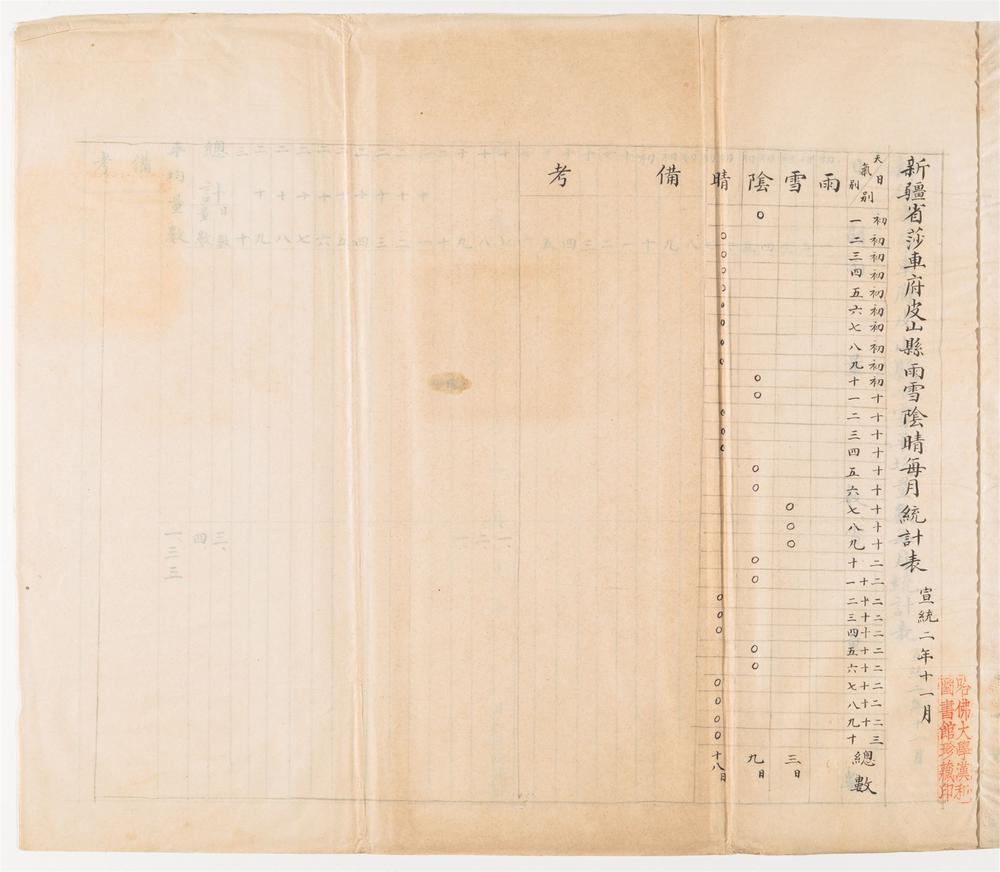 新疆省莎車府皮山縣雨雪隂晴每月統計表
宣統二年十一月
哈佛大學漢和
圖書館珍藏印
天氣別
日別
初一
初二
初三
初四
初五
初六
初七
初八
初九
初十
十一
十二
十三
十四
十五
十六
十七
十八
十九
二十
二十一
二十二
二十三
二十四
二十五
二十六
二十七
二十八
二十九
三十
總數
雨
雪
三日
隂
九日
晴
十八日
備考